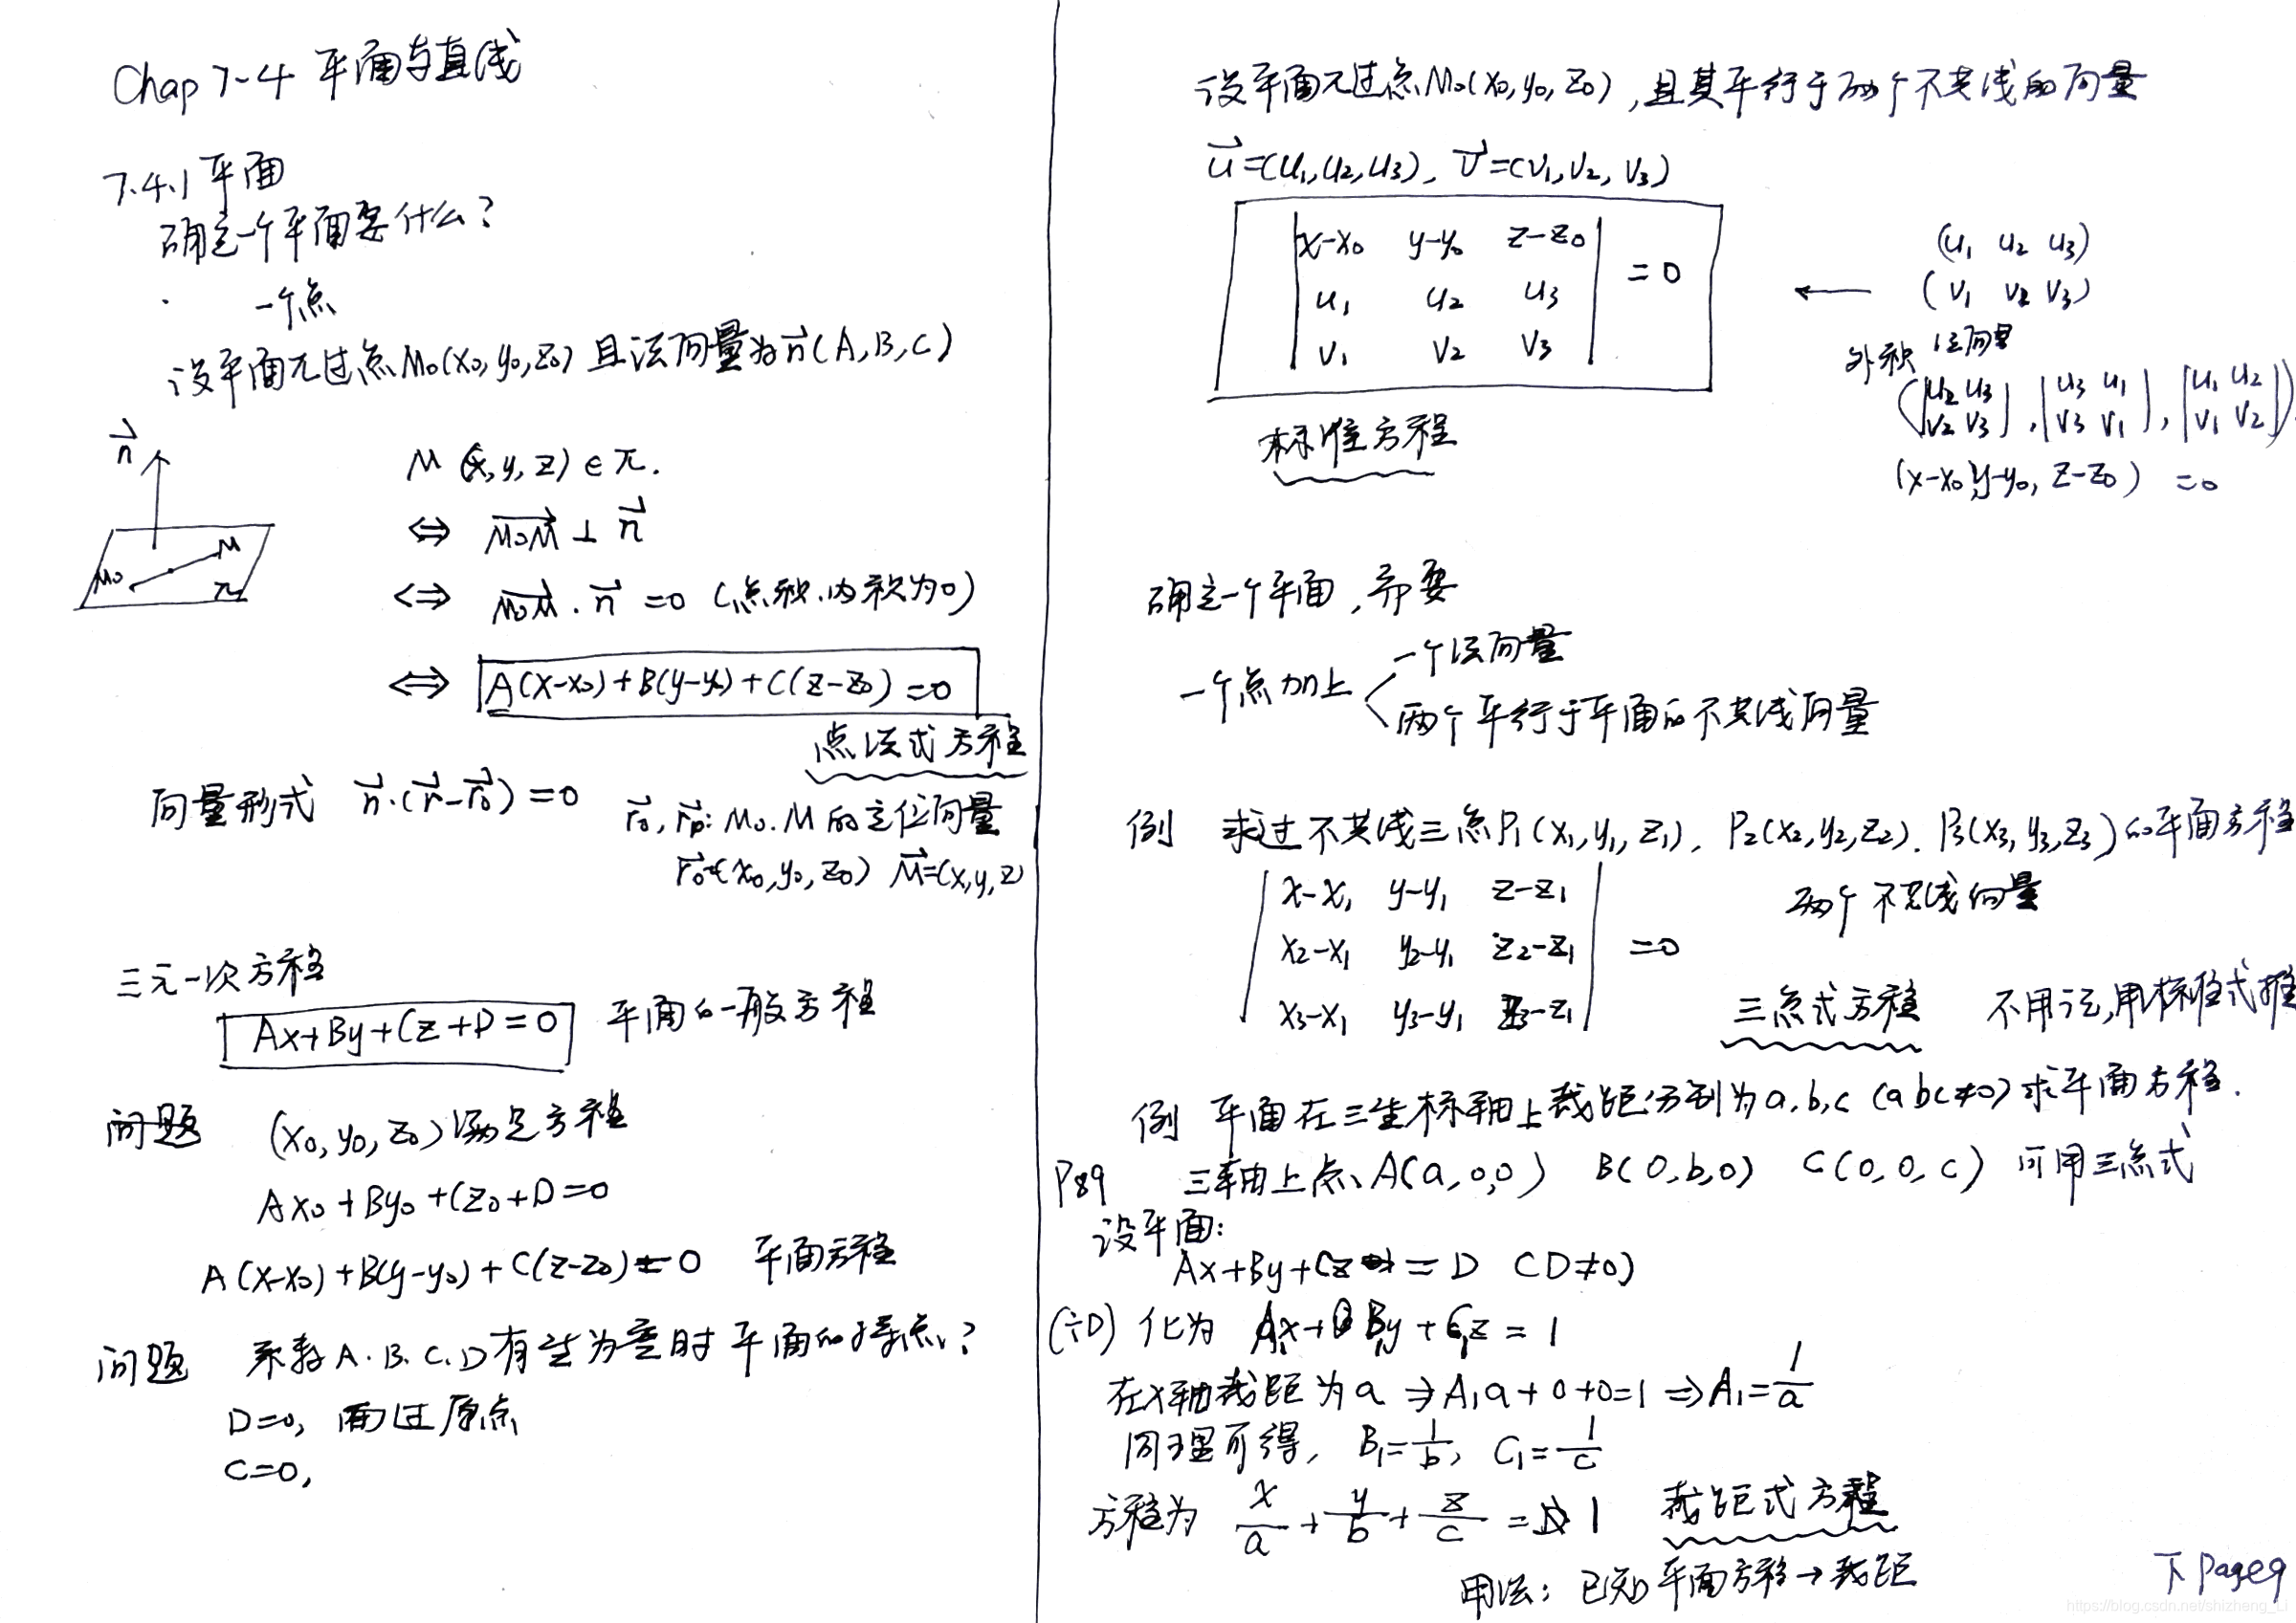 Chap 7-4 平面与直线
7.4.1 平面
确定一个平面要什么?
一个点
设平面π过点M₀(x₀,y₀,z₀)且法向量为n⃗(A,B,C)
n⃗
M
M₀
π
M(x,y,z)∈π.
⇔ M₀M⃗ ⊥ n⃗
⇔ M₀M⃗ · n⃗ =0 (点积.内积为0)
⇔ A(x-x₀)+B(y-y₀)+C(z-z₀)=0
点法式方程
向量形式 n⃗·(r⃗-r⃗₀)=0
r⃗₀, r⃗: M₀.M的定位向量
r⃗₀=(x₀,y₀,z₀) M⃗=(x,y,z)
三元一次方程
Ax+By+Cz+D=0 平面的一般方程
问题 (x₀,y₀,z₀)满足方程
Ax₀+By₀+Cz₀+D=0
A(x-x₀)+B(y-y₀)+C(z-z₀)=0 平面方程
问题 系数A.B.C.D有些为零时平面的特点?
D=0, 面过原点
C=0,
设平面π过点M₀(x₀,y₀,z₀),且其平行于两个不共线的向量
u⃗=(u₁,u₂,u₃), v⃗=(v₁,v₂,v₃)
|x-x₀ y-y₀ z-z₀|
|u₁ u₂ u₃| =0
|v₁ v₂ v₃|
标准方程
(u₁ u₂ u₃)
← (v₁ v₂ v₃)
外积 法向量
(|u₂ u₃| , |u₃ u₁| , |u₁ u₂|)
(|v₂ v₃| , |v₃ v₁| , |v₁ v₂|)
(x-x₀,y-y₀, z-z₀) =0
确定一个平面,需要
一个法向量
一个点加上
两个平行于平面的不共线向量
例 求过不共线三点P₁(x₁,y₁,z₁), P₂(x₂,y₂,z₂). P₃(x₃,y₃,z₃)的平面方程
|x-x₁ y-y₁ z-z₁|
|x₂-x₁ y₂-y₁ z₂-z₁| =0
|x₃-x₁ y₃-y₁ z₃-z₁|
两个不共线向量
三点式方程 不用记,用标准式推
例 平面在三坐标轴上截距分别为a,b,c (abc≠0)求平面方程.
P89 三轴上点、A(a,0,0) B(0,b,0) C(0,0,c) 可用三点式
设平面:
Ax+By+Cz = D (D≠0)
(÷D) 化为 A₁x+B₁y+C₁z = 1
在x轴截距为a ⇒A₁a+0+0=1 ⇒A₁=1/a
同理可得, B₁=1/b, C₁=1/c
方程为 x/a + y/b + z/c = 1 截距式方程
用法: 已知平面方程→截距
下Page9
https://blog.csdn.net/shizheng_Li